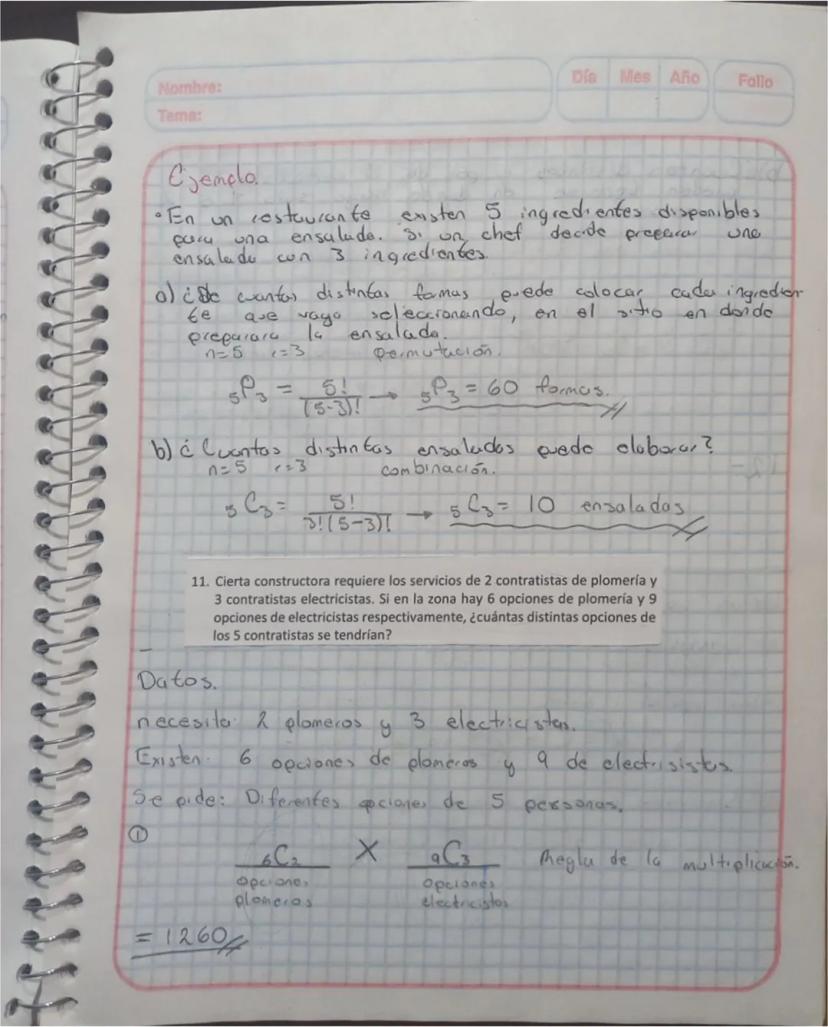 Nombre:
Tema:
Día Mes Año Folio
Ejemplo.
• En un restaurante existen 5 ingredientes disponibles
para una ensalada. Si un chef decide preparar una
ensalada con 3 ingredientes.
a) ¿De cuantas distintas formas puede colocar cada ingredien
te que vaya seleccionando, en el sitio en donde
preparara la ensalada.
n=5 r=3 permutación.
₅P₃ = 5!/(5-3)! → ₅P₃ = 60 formas.
b) ¿Cuantas distintas ensaladas puede elaborar?
n=5 r=3 combinación.
₅C₃ = 5!/3!(5-3)! → ₅C₃ = 10 ensaladas
11. Cierta constructora requiere los servicios de 2 contratistas de plomería y
3 contratistas electricistas. Si en la zona hay 6 opciones de plomería y 9
opciones de electricistas respectivamente, ¿cuántas distintas opciones de
los 5 contratistas se tendrían?
Datos.
necesita: 2 plomeros y 3 electricistas.
Existen: 6 opciones de plomeros y 9 de electrisistas.
Se pide: Diferentes opciones de 5 personas.
①
₆C₂ X ₉C₃ Regla de la multiplicación.
opciones opciones
plomeros electricistas
= 1260